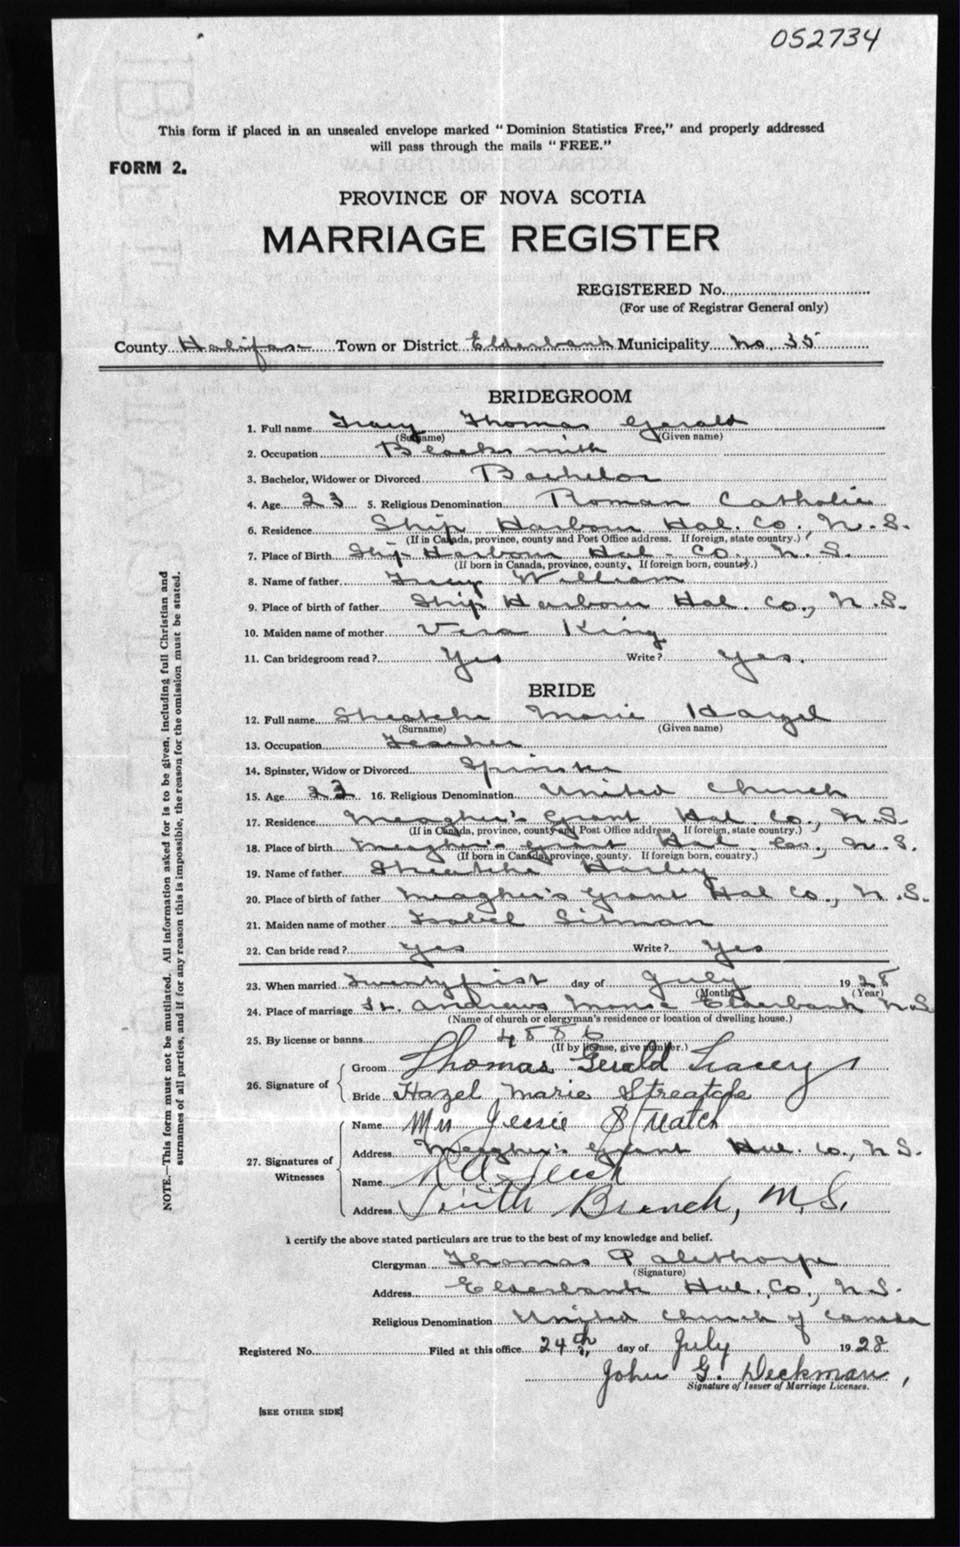 052734
This form if placed in an unsealed envelope marked "Dominion Statistics Free," and properly addressed
will pass through the mails "FREE."
FORM 2.
PROVINCE OF NOVA SCOTIA
MARRIAGE REGISTER
REGISTERED No.
(For use of Registrar General only)
County Halifax Town or District Elderbank Municipality No. 35
BRIDEGROOM
1. Full name Tracy Thomas Gerald
(Surname) (Given name)
2. Occupation Blacksmith
3. Bachelor, Widower or Divorced Bachelor
4. Age 23 5. Religious Denomination Roman Catholic
6. Residence Ship Harbour Hal. Co., N.S.
(If in Canada, province, county and Post Office address. If foreign, state country.)
7. Place of Birth Ship Harbour Hal. Co., N.S.
(If born in Canada, province, county. If foreign born, country.)
8. Name of father Tracy William
9. Place of birth of father Ship Harbour Hal. Co., N.S.
10. Maiden name of mother Vera King
11. Can bridegroom read? Yes Write? Yes.
BRIDE
12. Full name Marie Hazel
(Surname) (Given name)
13. Occupation Teacher
14. Spinster, Widow or Divorced Spinster
15. Age 16. Religious Denomination United Church
17. Residence Meagher's Grant Hal. Co., N.S.
(If in Canada, province, county and Post Office address. If foreign, state country.)
18. Place of birth Meagher's Grant Hal. Co., N.S.
(If born in Canada, province, county. If foreign born, country.)
19. Name of father Harley
20. Place of birth of father Meagher's Grant Hal Co., N.S.
21. Maiden name of mother Isabel
22. Can bride read? Yes Write? Yes
23. When married Twenty first day of July 1928
(Month) (Year)
24. Place of marriage St. Andrews Manse Elderbank N.S
(Name of church or clergyman's residence or location of dwelling house.)
25. By license or banns 4886
(If by license, give number.)
26. Signature of
Groom Thomas Gerald Tracey
Bride Hazel Marie
27. Signatures of Witnesses
Name Mrs Jessie Streatch
Address Meagher's Grant Hal. Co., N.S.
Name
Address Branch, N.S.
I certify the above stated particulars are true to the best of my knowledge and belief.
Clergyman Thomas Palethorpe
(Signature)
Address Elderbank Hal. Co., N.S.
Religious Denomination United Church of Canada
Registered No. Filed at this office 24th day of July 1928
John G. Deckman,
Signature of Issuer of Marriage Licenses.
[SEE OTHER SIDE]
NOTE.—This form must not be mutilated. All information asked for is to be given, including full Christian and
surnames of all parties, and if for any reason this is impossible, the reason for the omission must be stated.